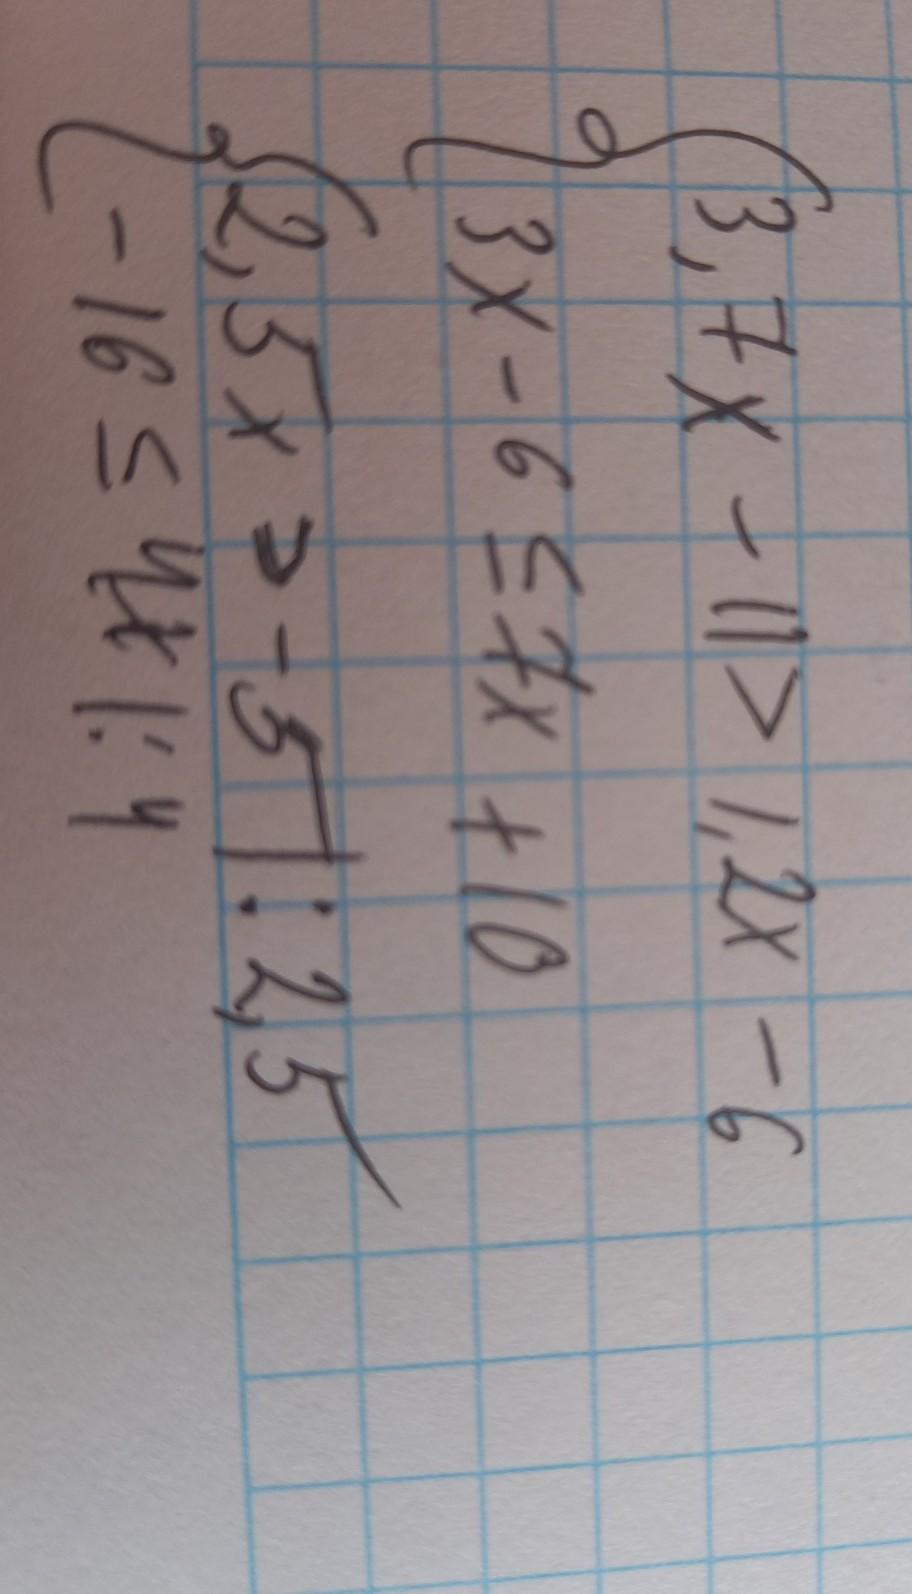 3,7x - 11 > 1,2x - 6
3x - 6 ≤ 7x + 10
2,5x > -5 | : 2,5
-16 ≤ 4x | : 4